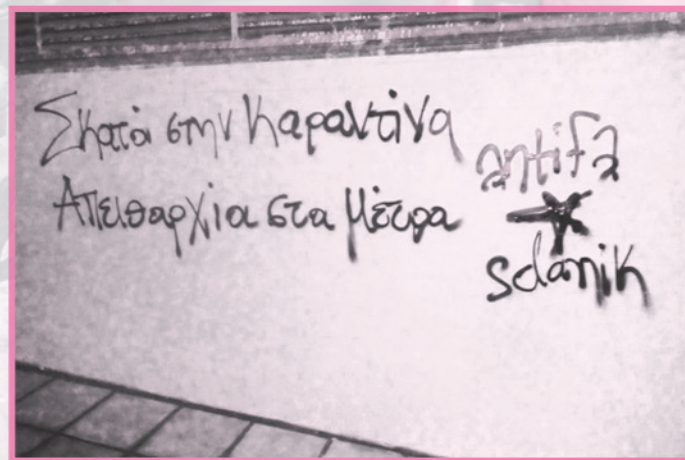 Σκατά στην Καραντίνα
Απειθαρχία στα Μέτρα
antifa
selanik